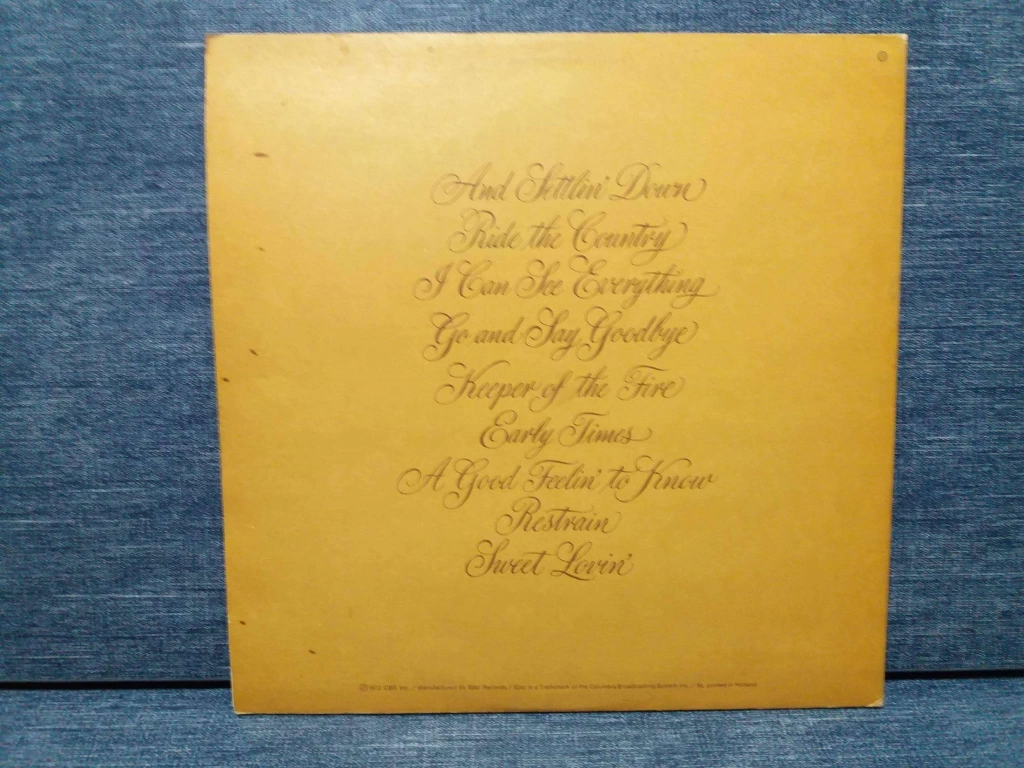 And Settlin' Down
Ride the Country
I Can See Everything
Go and Say Goodbye
Keeper of the Fire
Early Times
A Good Feelin' to Know
Restrain
Sweet Lovin'
Ⓟ1972 CBS Inc. / Manufactured by Epic Records / Epic is a Trademark of the Columbia Broadcasting System Inc. / printed in Holland